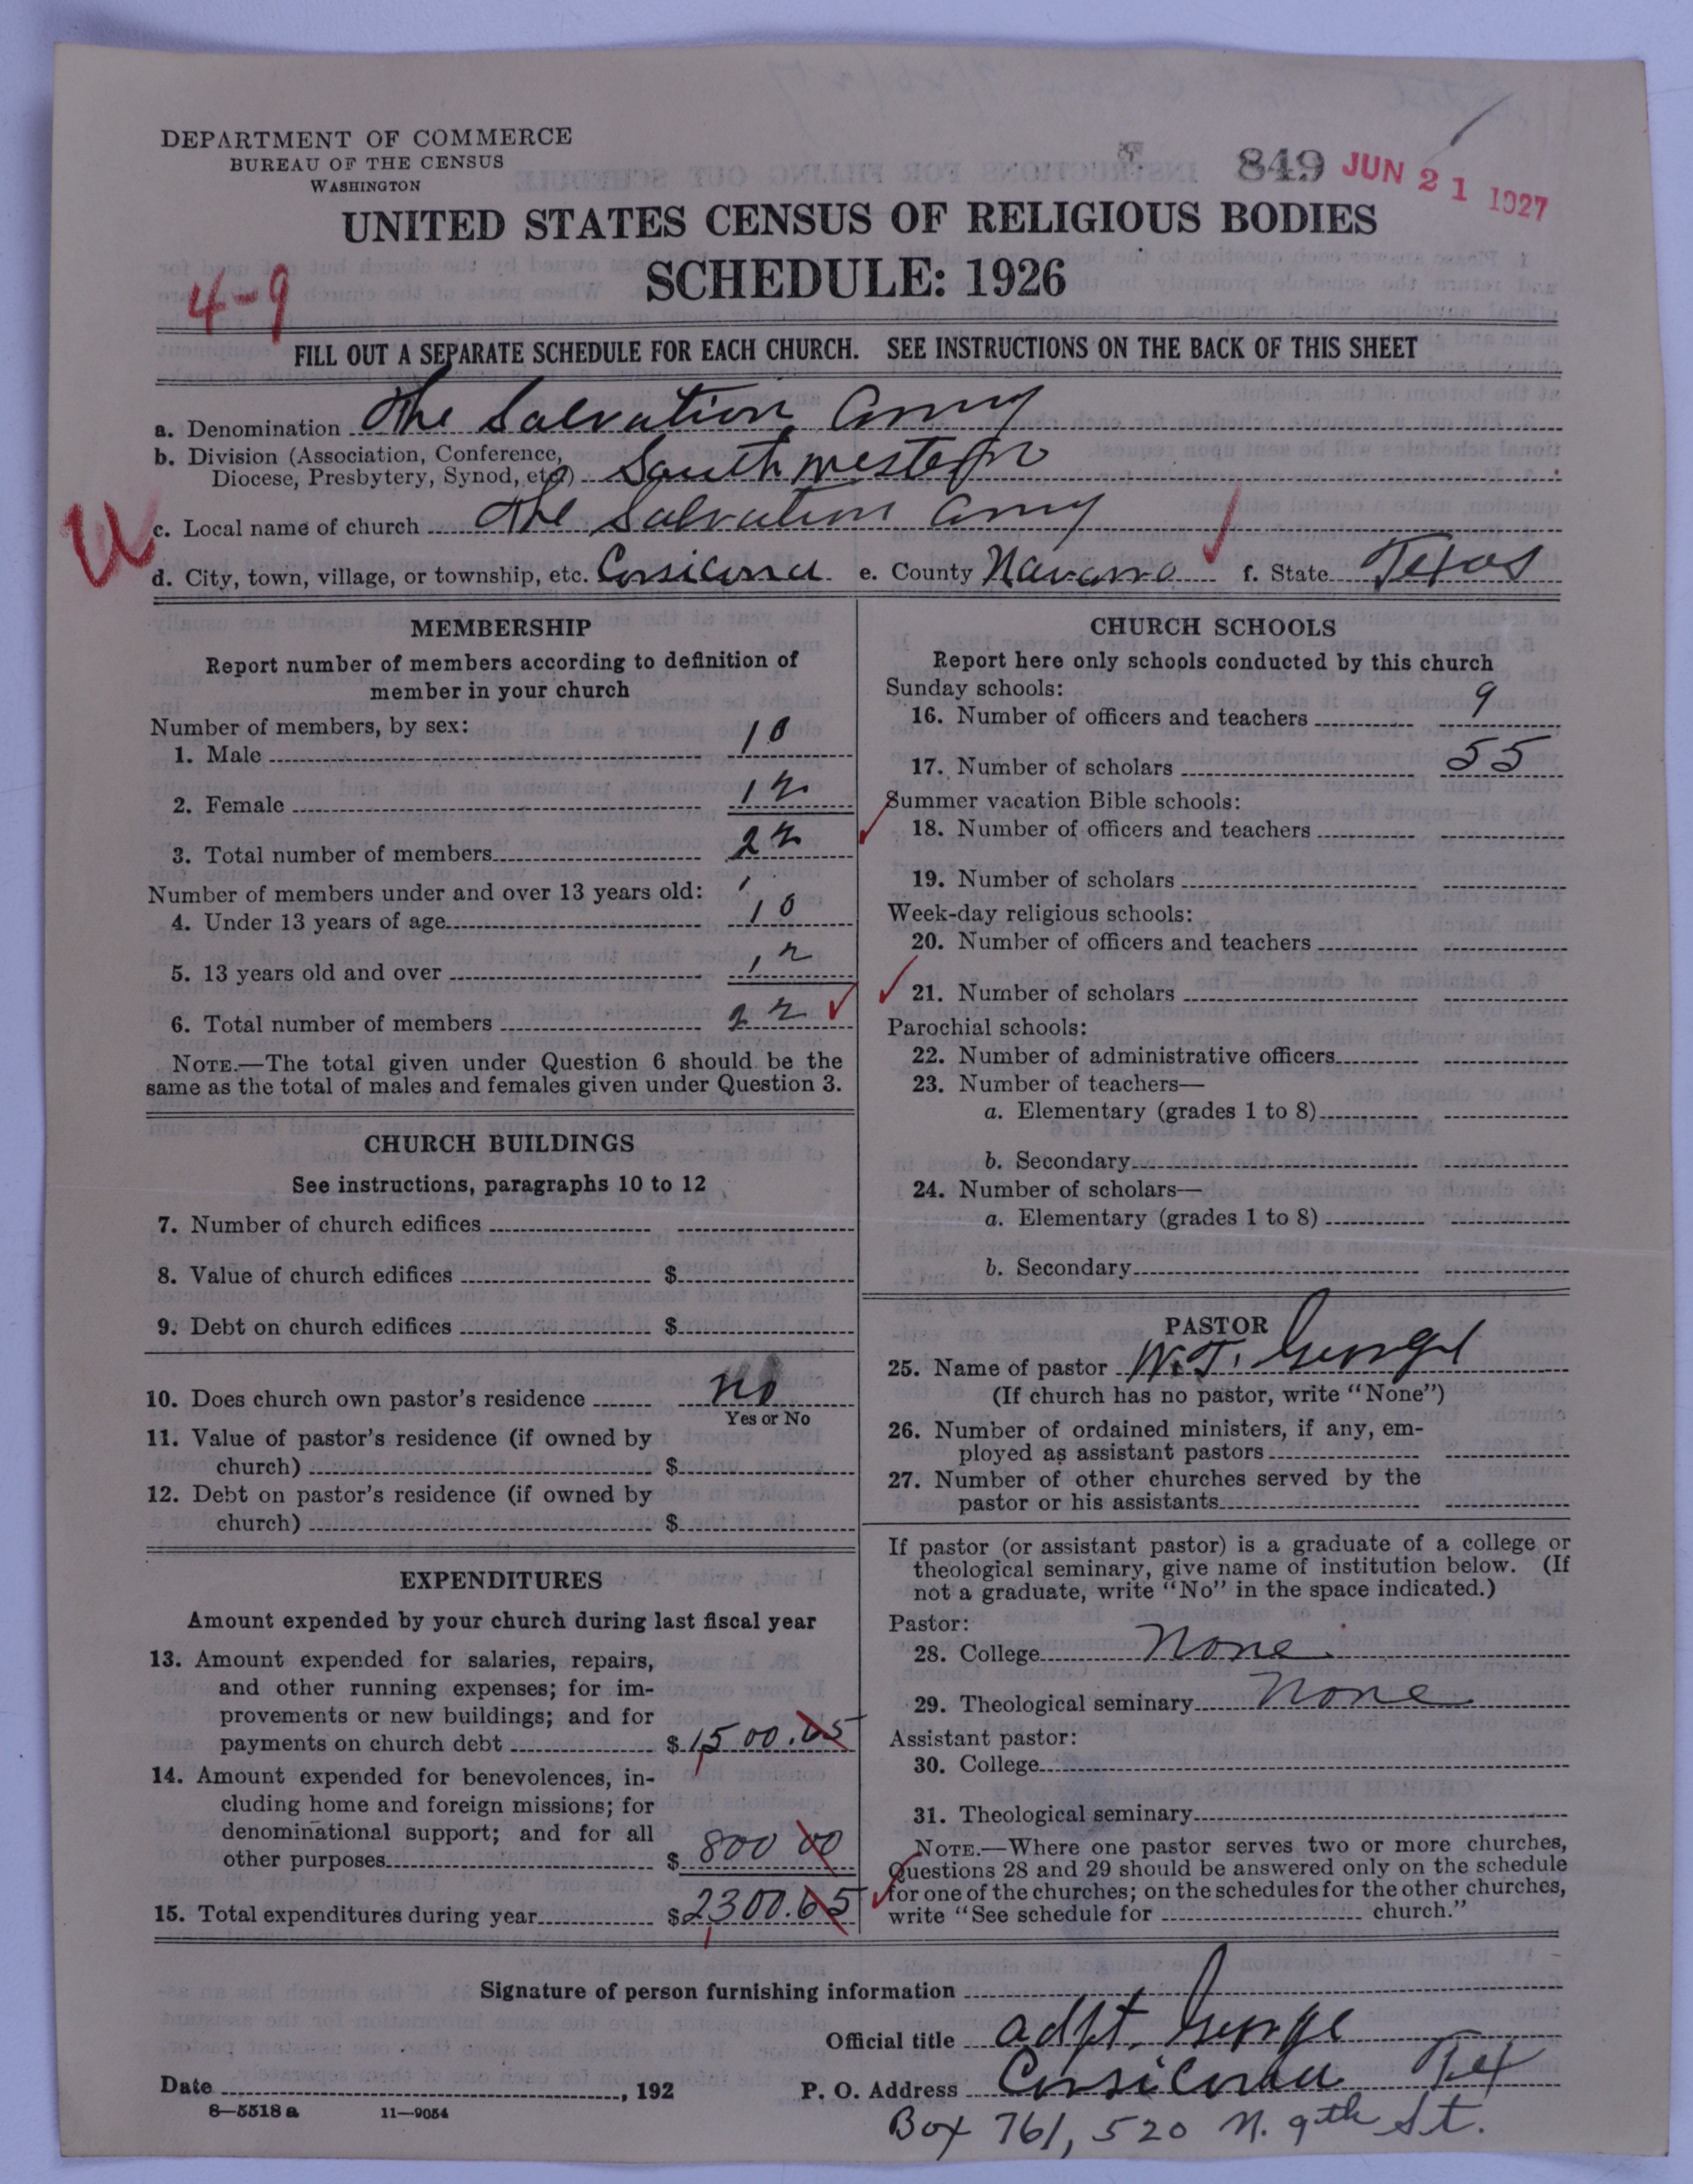 DEPARTMENT OF COMMERCE
BUREAU OF THE CENSUS
WASHINGTON
849 JUN 21 1927
UNITED STATES CENSUS OF RELIGIOUS BODIES
SCHEDULE: 1926
4-9
FILL OUT A SEPARATE SCHEDULE FOR EACH CHURCH. SEE INSTRUCTIONS ON THE BACK OF THIS SHEET
a. Denomination The Salvation Army
b. Division (Association, Conference,
Diocese, Presbytery, Synod, etc.) Southwestern
c. Local name of church The Salvation Army
d. City, town, village, or township, etc. Corsicana e. County Navarro f. State Texas
MEMBERSHIP
Report number of members according to definition of
member in your church
Number of members, by sex:
1. Male 10
2. Female 12
3. Total number of members 22
Number of members under and over 13 years old:
4. Under 13 years of age 10
5. 13 years old and over 12
6. Total number of members 22
NOTE.—The total given under Question 6 should be the
same as the total of males and females given under Question 3.
CHURCH BUILDINGS
See instructions, paragraphs 10 to 12
7. Number of church edifices
8. Value of church edifices $
9. Debt on church edifices $
10. Does church own pastor's residence no
Yes or No
11. Value of pastor's residence (if owned by
church) $
12. Debt on pastor's residence (if owned by
church) $
EXPENDITURES
Amount expended by your church during last fiscal year
13. Amount expended for salaries, repairs,
and other running expenses; for im-
provements or new buildings; and for
payments on church debt $1500.65
14. Amount expended for benevolences, in-
cluding home and foreign missions; for
denominational support; and for all
other purposes $ 800 00
15. Total expenditures during year $2300.65
CHURCH SCHOOLS
Report here only schools conducted by this church
Sunday schools:
16. Number of officers and teachers 9
17. Number of scholars 55
Summer vacation Bible schools:
18. Number of officers and teachers
19. Number of scholars
Week-day religious schools:
20. Number of officers and teachers
21. Number of scholars
Parochial schools:
22. Number of administrative officers
23. Number of teachers—
a. Elementary (grades 1 to 8)
b. Secondary
24. Number of scholars—
a. Elementary (grades 1 to 8)
b. Secondary
PASTOR
25. Name of pastor W.T. George
(If church has no pastor, write "None")
26. Number of ordained ministers, if any, em-
ployed as assistant pastors
27. Number of other churches served by the
pastor or his assistants
If pastor (or assistant pastor) is a graduate of a college or
theological seminary, give name of institution below. (If
not a graduate, write "No" in the space indicated.)
Pastor:
28. College None
29. Theological seminary None
Assistant pastor:
30. College
31. Theological seminary
NOTE.—Where one pastor serves two or more churches,
Questions 28 and 29 should be answered only on the schedule
for one of the churches; on the schedules for the other churches,
write "See schedule for church."
Signature of person furnishing information
Official title adjt. George
Date , 192 P. O. Address Corsicana Tex
8—5518 a 11—9054
Box 761, 520 N. 9th St.